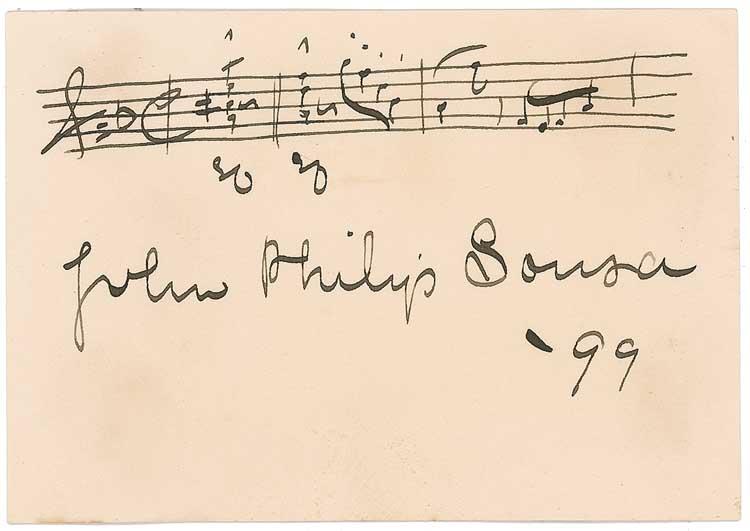 John Philip Sousa
'99